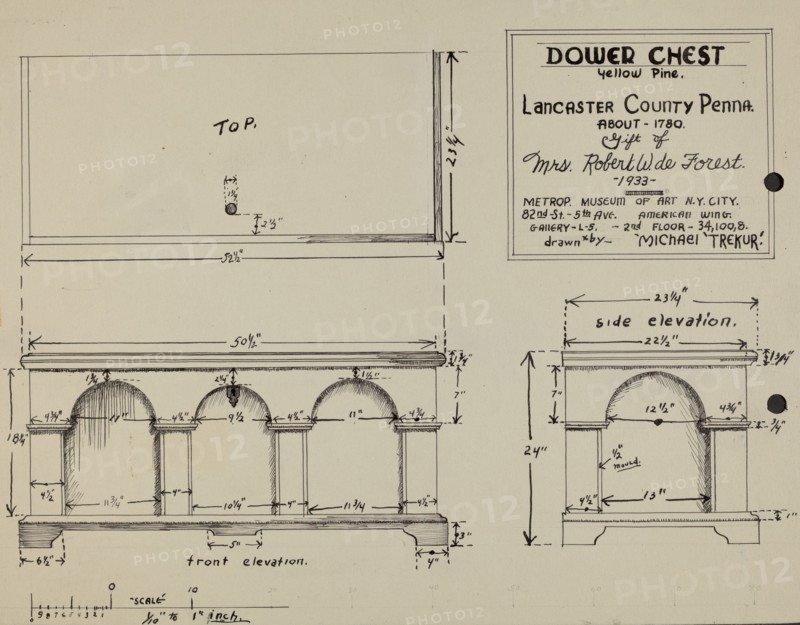 DOWER CHEST
Yellow Pine.
LANCASTER COUNTY PENNA.
ABOUT - 1780.
Gift of
Mrs. Robert W. de Forest.
-1933-
METROP. MUSEUM OF ART N.Y. CITY.
82nd St. - 5th Ave. AMERICAN WING.
GALLERY - L-5. - 2nd FLOOR - 34,100,8.
drawn by - "Michael TREKUR."
TOP.
1¼
2½"
23¾"
52½"
50½"
1¾"
1¾"
2¼"
1½"
7"
4¾"
11"
4½"
9½
4½"
11"
4¾
18¼"
4½"
11¾"
4"
10¼"
4"
11¾
4½"
3"
6½"
5"
4"
front elevation.
23¼"
side elevation.
22½"
1¾"
7"
12½"
4¾"
¾"
24"
½"
mound.
4½"
13"
1"
0 10
"SCALE"
9 8 7 6 5 4 3 2 1
1/10" to 1" inch.
PHOTO12
PHOTO12
PHOTO12
PHOTO12
PHOTO12
PHOTO12